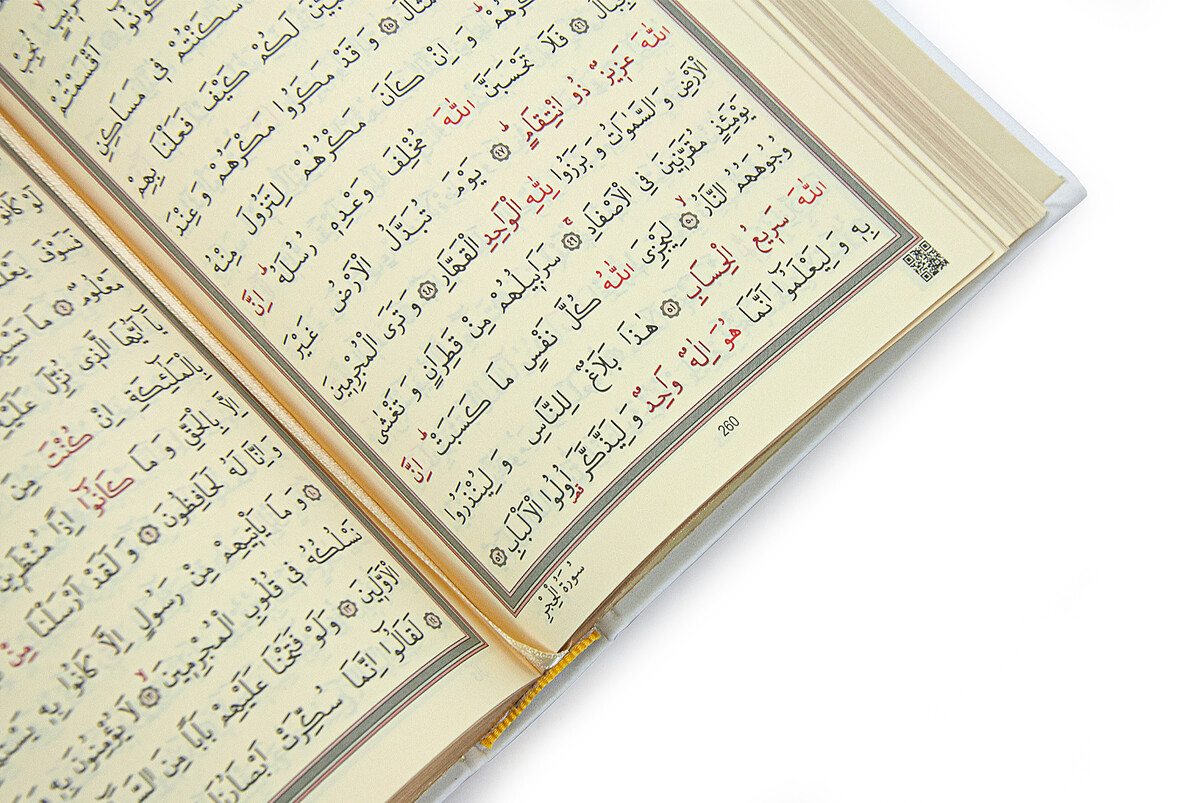 نُجِبْ
اَقْسَمْتُمْ
سَكَنْتُمْ ف۪ي مَسَاكِنِ
لَكُمْ كَيْفَ فَعَلْنَا بِهِمْ
﴿٤٥﴾ وَ قَدْ مَكَرُوا مَكْرَهُمْ وَ عِنْدَ
وَ اِنْ كَانَ مَكْرُهُمْ لِتَزُولَ مِنْهُ
﴿٤٦﴾ فَلَا تَحْسَبَنَّ اللّٰهَ مُخْلِفَ وَعْدِه۪ رُسُلَهُؕ اِنَّ
اللّٰهَ عَز۪يزٌ ذُو انْتِقَامٍؕ ﴿٤٧﴾ يَوْمَ تُبَدَّلُ الْاَرْضُ غَيْرَ
الْاَرْضِ وَ السَّمٰوَاتُ وَ بَرَزُوا لِلّٰهِ الْوَاحِدِ الْقَهَّارِ ﴿٤٨﴾ وَ تَرَى الْمُجْرِم۪ينَ
يَوْمَئِذٍ مُقَرَّن۪ينَ فِي الْاَصْفَادِۚ ﴿٤٩﴾ سَرَاب۪يلُهُمْ مِنْ قَطِرَانٍ وَ تَغْشٰى
وُجُوهَهُمُ النَّارُۙ ﴿٥٠﴾ لِيَجْزِيَ اللّٰهُ كُلَّ نَفْسٍ مَا كَسَبَتْؕ اِنَّ
اللّٰهَ سَر۪يعُ الْحِسَابِ ﴿٥١﴾ هٰذَا بَلَاغٌ لِلنَّاسِ وَ لِيُنْذَرُوا
بِه۪ وَ لِيَعْلَمُٓوا اَنَّمَا هُوَ اِلٰهٌ وَاحِدٌ وَ لِيَذَّكَّرَ اُو۬لُوا الْاَلْبَابِ ﴿٥٢﴾
260
سُورَةُ الْحِجْرِ
لَوْ كَانُوا
فَسَوْفَ
مَعْلُومٌ ﴿٤﴾ مَا
يَٓا اَيُّهَا الَّذ۪ي نُزِّلَ
بِالْمَلٰٓئِكَةِ اِنْ كُنْتَ مِنَ
اِلَّا بِالْحَقِّ وَ مَا كَانُٓوا اِذًا مُنْظَر۪ينَ
وَ اِنَّا لَهُ لَحَافِظُونَ ﴿٩﴾ وَ لَقَدْ اَرْسَلْنَا مِنْ
﴿١٠﴾ وَ مَا يَأْت۪يهِمْ مِنْ رَسُولٍ اِلَّا كَانُوا بِه۪
نَسْلُكُهُ ف۪ي قُلُوبِ الْمُجْرِم۪ينَۙ ﴿١٢﴾ لَا يُؤْمِنُونَ بِه۪
الْاَوَّل۪ينَ ﴿١٣﴾ وَلَوْ فَتَحْنَا عَلَيْهِمْ بَابًا مِنَ
﴿١٤﴾ لَقَالُٓوا اِنَّمَا سُكِّرَتْ اَبْصَارُنَا